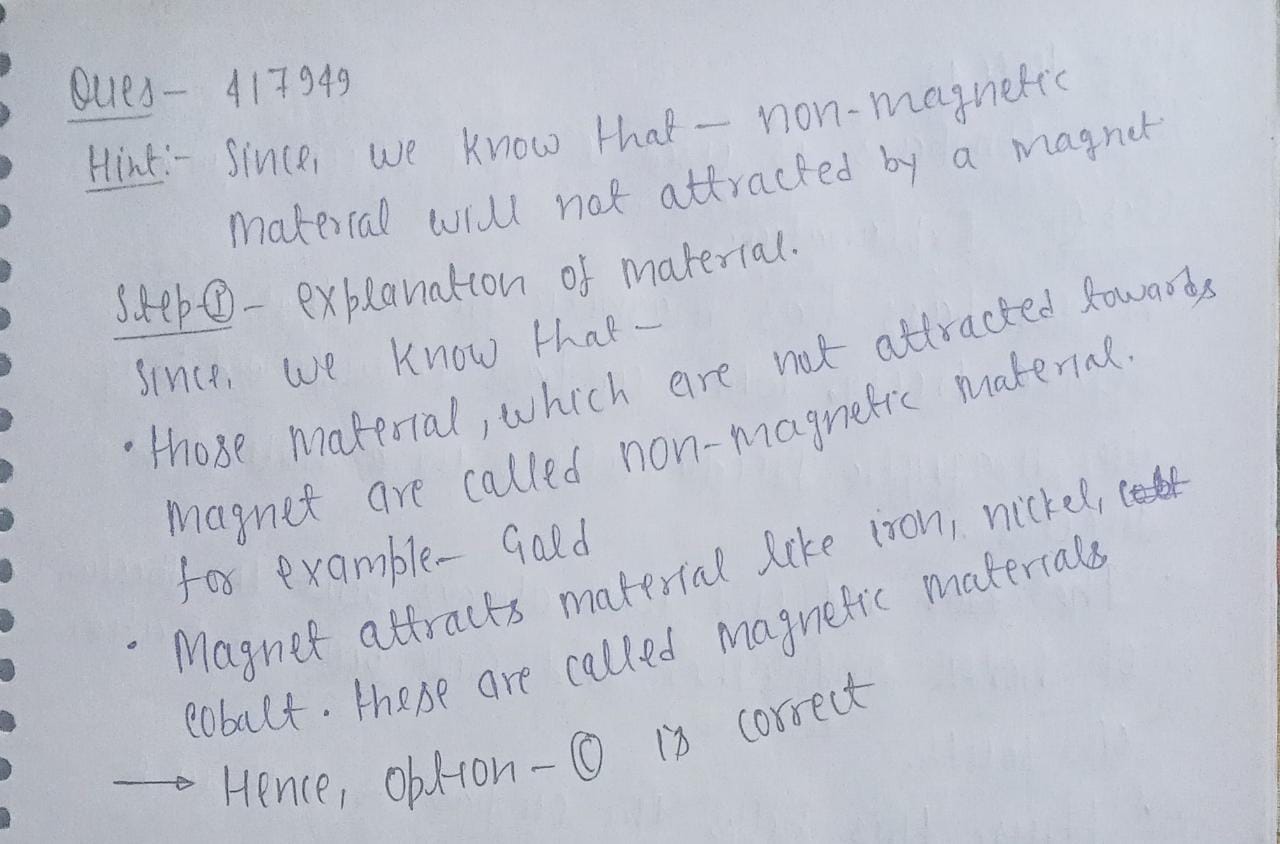 Ques- 417949
Hint:- Since, we know that - non-magnetic
material will not attracted by a magnet
Step ① - explanation of material.
Since, we know that -
• those material, which are not attracted towards
magnet are called non-magnetic material.
for example- Gold
• Magnet attracts material like iron, nickel,
cobalt. these are called magnetic materials
→ Hence, option - © is correct